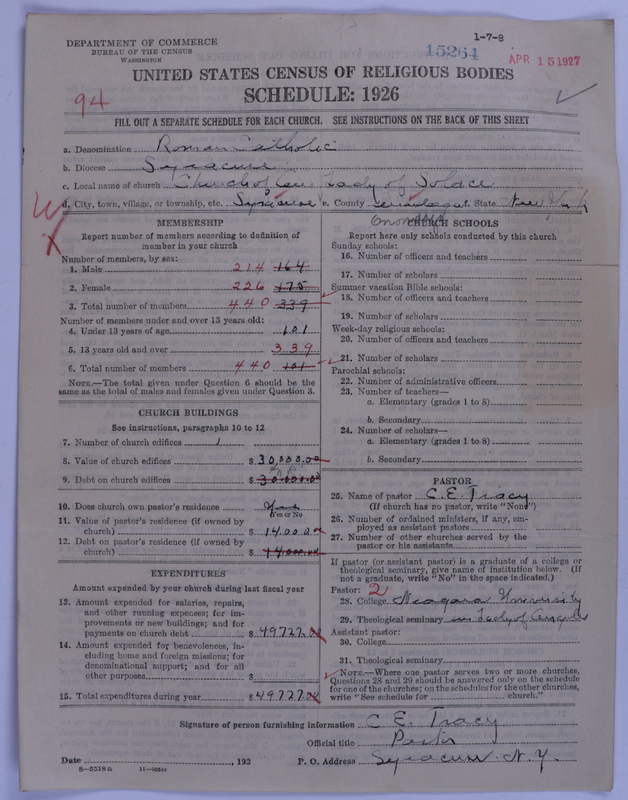 DEPARTMENT OF COMMERCE
BUREAU OF THE CENSUS
WASHINGTON
1-7-8
15264
APR 15 1927
UNITED STATES CENSUS OF RELIGIOUS BODIES
SCHEDULE: 1926
94
FILL OUT A SEPARATE SCHEDULE FOR EACH CHURCH. SEE INSTRUCTIONS ON THE BACK OF THIS SHEET
a. Denomination Roman Catholic
b. Diocese Syracuse
c. Local name of church Church of Our Lady of Solace
d. City, town, village, or township, etc. Syracuse e. County Onondaga f. State New York
MEMBERSHIP
Report number of members according to definition of
member in your church
Number of members, by sex:
1. Male 214 164
2. Female 226 175
3. Total number of members 440 339
Number of members under and over 13 years old:
4. Under 13 years of age 101
5. 13 years old and over 339
6. Total number of members 440 101
NOTE.—The total given under Question 6 should be the
same as the total of males and females given under Question 3.
CHURCH BUILDINGS
See instructions, paragraphs 10 to 12
7. Number of church edifices 1
8. Value of church edifices $30,000.00
9. Debt on church edifices $30.000.00
10. Does church own pastor's residence Yes
(Yes or No)
11. Value of pastor's residence (if owned by
church) $14000.00
12. Debt on pastor's residence (if owned by
church) $14,000.00
EXPENDITURES
Amount expended by your church during last fiscal year
13. Amount expended for salaries, repairs,
and other running expenses; for im-
provements or new buildings; and for
payments on church debt $49727.
14. Amount expended for benevolences, in-
cluding home and foreign missions; for
denominational support; and for all
other purposes $
15. Total expenditures during year $49727.
CHURCH SCHOOLS
Report here only schools conducted by this church
Sunday schools:
16. Number of officers and teachers
17. Number of scholars
Summer vacation Bible schools:
18. Number of officers and teachers
19. Number of scholars
Week-day religious schools:
20. Number of officers and teachers
21. Number of scholars
Parochial schools:
22. Number of administrative officers
23. Number of teachers—
a. Elementary (grades 1 to 8)
b. Secondary
24. Number of scholars—
a. Elementary (grades 1 to 8)
b. Secondary
PASTOR
25. Name of pastor C. E. Tracy
(If church has no pastor, write "None")
26. Number of ordained ministers, if any, em-
ployed as assistant pastors
27. Number of other churches served by the
pastor or his assistants
If pastor (or assistant pastor) is a graduate of a college or
theological seminary, give name of institution below. (If
not a graduate, write "No" in the space indicated.)
Pastor: 2
28. College Niagara University
29. Theological seminary Our Lady of Angels
Assistant pastor:
30. College
31. Theological seminary
NOTE.—Where one pastor serves two or more churches,
Questions 28 and 29 should be answered only on the schedule
for one of the churches; on the schedules for the other churches,
write "See schedule for church."
Signature of person furnishing information C. E. Tracy
Official title Pastor
Date , 192 P. O. Address Syracuse N. Y.
8-5518a 11-9084a